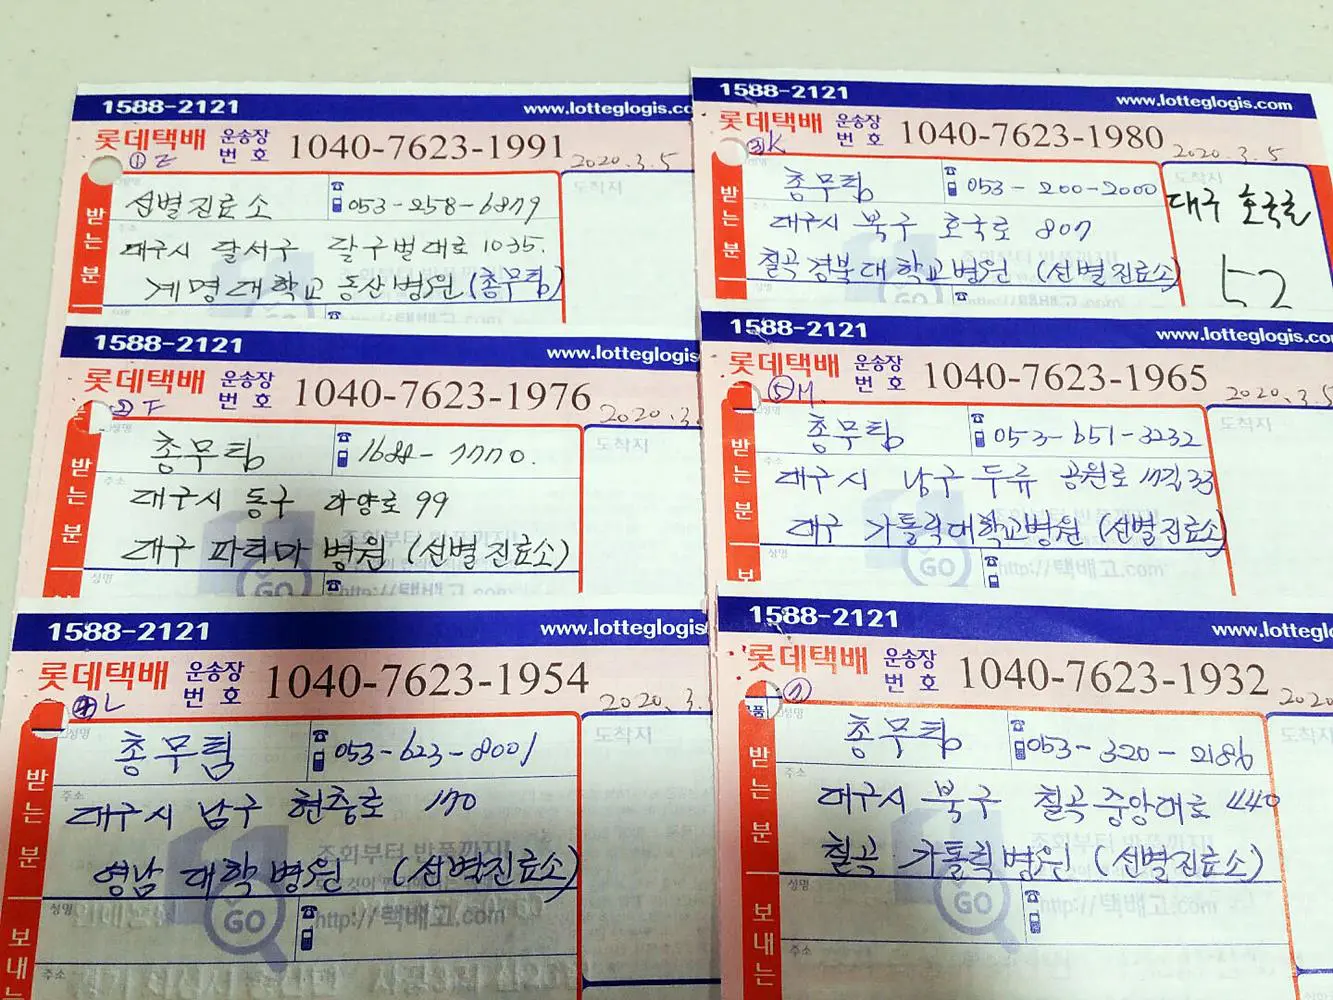 1588-2121
www.lotteglogis.co
롯데택배 운송장 번호 1040-7623-1991
2020.3.5
① E
받는분
선별진료소 053-258-6879
도착지
대구시 달서구 달구벌대로 1035.
계명대학교 동산병원 (총무팀)
1588-2121
www.lotteglogis.com
롯데택배 운송장 번호 1040-7623-1980
2020.3.5
③K
받는분
총무팀 053-200-2000
도착지
대구시 북구 호국로 807
칠곡 경북대학교병원 (선별진료소)
대구 호국로
52
1588-2121
www.lotteglogis
롯데택배 운송장 번호 1040-7623-1976
2020.3.
② F
받는분
성명
총무팀 1688-7770.
도착지
주소
대구시 동구 아양로 99
대구 파티마 병원 (선별진료소)
성명
1588-2121
www.lotteglogis.co
롯데택배 운송장 번호 1040-7623-1965
2020.3.5
⑤M.
받는분
총무팀 053-651-3232
도착지
주소
대구시 남구 두류 공원로 17길 33
대구 가톨릭대학교병원 (선별진료소)
성명
GO
http://택배고.com
1588-2121
www.lotteglogis
롯데택배 운송장 번호 1040-7623-1954
2020.3.
④L
받는분
성명
총무팀 053-623-8001
도착지
주소
대구시 남구 현충로 170
조회부터 반품까지!
영남 대학 병원 (선별진료소)
성명
GO
http://택배고.com
보내는
주소
1588-2121
www.lotteglo
롯데택배 운송장 번호 1040-7623-1932
2020
⑦
받는분
성명
총무팀 053-320-2186
도착지
주소
대구시 북구 칠곡중앙대로 440
조회부터 반품까지!
칠곡 가톨릭병원 (선별진료소)
성명
GO
http://택배고.com
보내는
주소